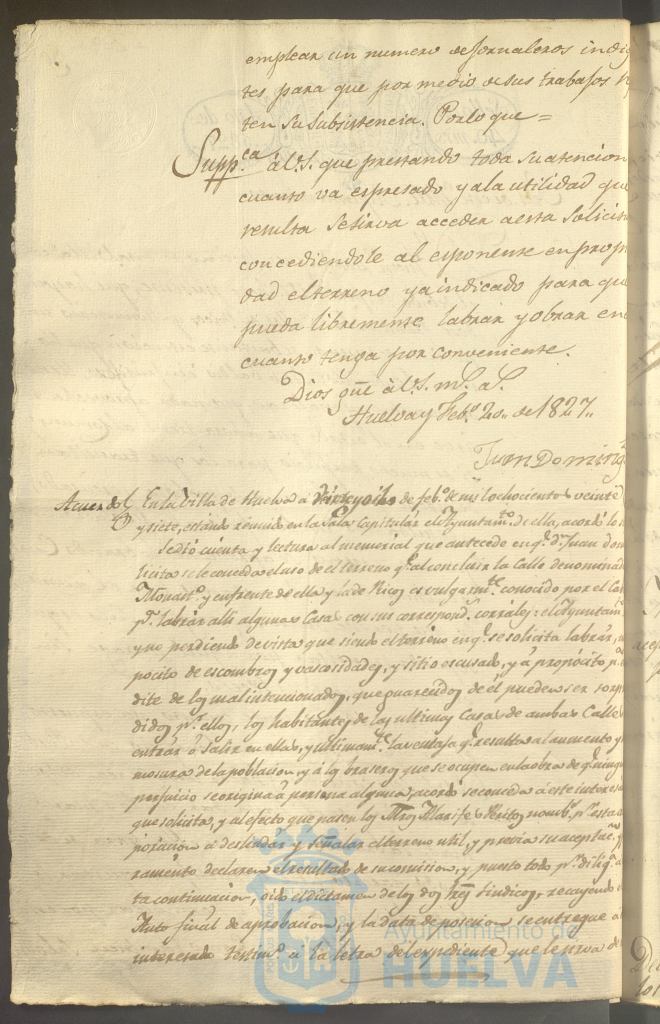 emplear un numero de jornaleros indig
tes para que por medio de sus trabajos
ten su subsistencia. Porlo que =
Supp.ca á V.S. que prestando toda su atencion
cuanto va espresado y ala utilidad que
resulta se sirva acceder a esta solicitu
concediendole al esponente en propi
dad el terreno ya indicado para que
pueda libremente labrar y obrar en
cuanto tenga por conveniente.
Dios gue á V.S. m.s a.s
Huelva y Feb.o 20 de 1827.
Juan Doming
Acuerdo En la Villa de Huelva a de feb.o de mil ochocientos veinte
y siete, estando reunido en la Sala Capitular el Ayuntam.to de ella, acordó lo
Se dió cuenta y lectura al memorial que antecede en q.e D.n Juan Dom
licita se le conceda el uso de el terreno q.e al concluir la Calle denominad
Monast.o y enfrente de ella y la de Ricos es vulgarm.te conocido por el
p.a labrar alli algunas Casas con sus correspond.s corrales: el Ayuntam
y no perdiendo de vista que siendo el terreno en q.e se solicita labrar,
posito de escombros y vascosidades, y sitio escusado, y á propósito p.a
dite de los mal intencionados, que guarecidos de él pueden ser sorp
didos p.r ellos, los habitantes de las ultimas Casas de ambas Calles
entrar ó salir en ellas, y ultimam.te la ventaja q.e resulta al aumento y
mosura de la poblacion, y á los braseros que se ocupen en la obra de q.e ningu
perjuicio se origina á persona alguna, acordó se conceda á este interesa
que solicita, y al efecto que pasen los Mros Alarifes Peritos nomb.s p.r esta
poracion á deslindar y señalar el terreno util, y previa su aceptac.n
ramento declaren el resultado de su comision, y puesto todo p.r dilig.a
ta continuacion, oido el dictamen de los dos Sindicos, recayendo
Auto final de aprobacion, y la data de posecion se entregue a
interesado testim.o á la letra del expediente que le sirva de
Ayuntamiento de
HUELVA